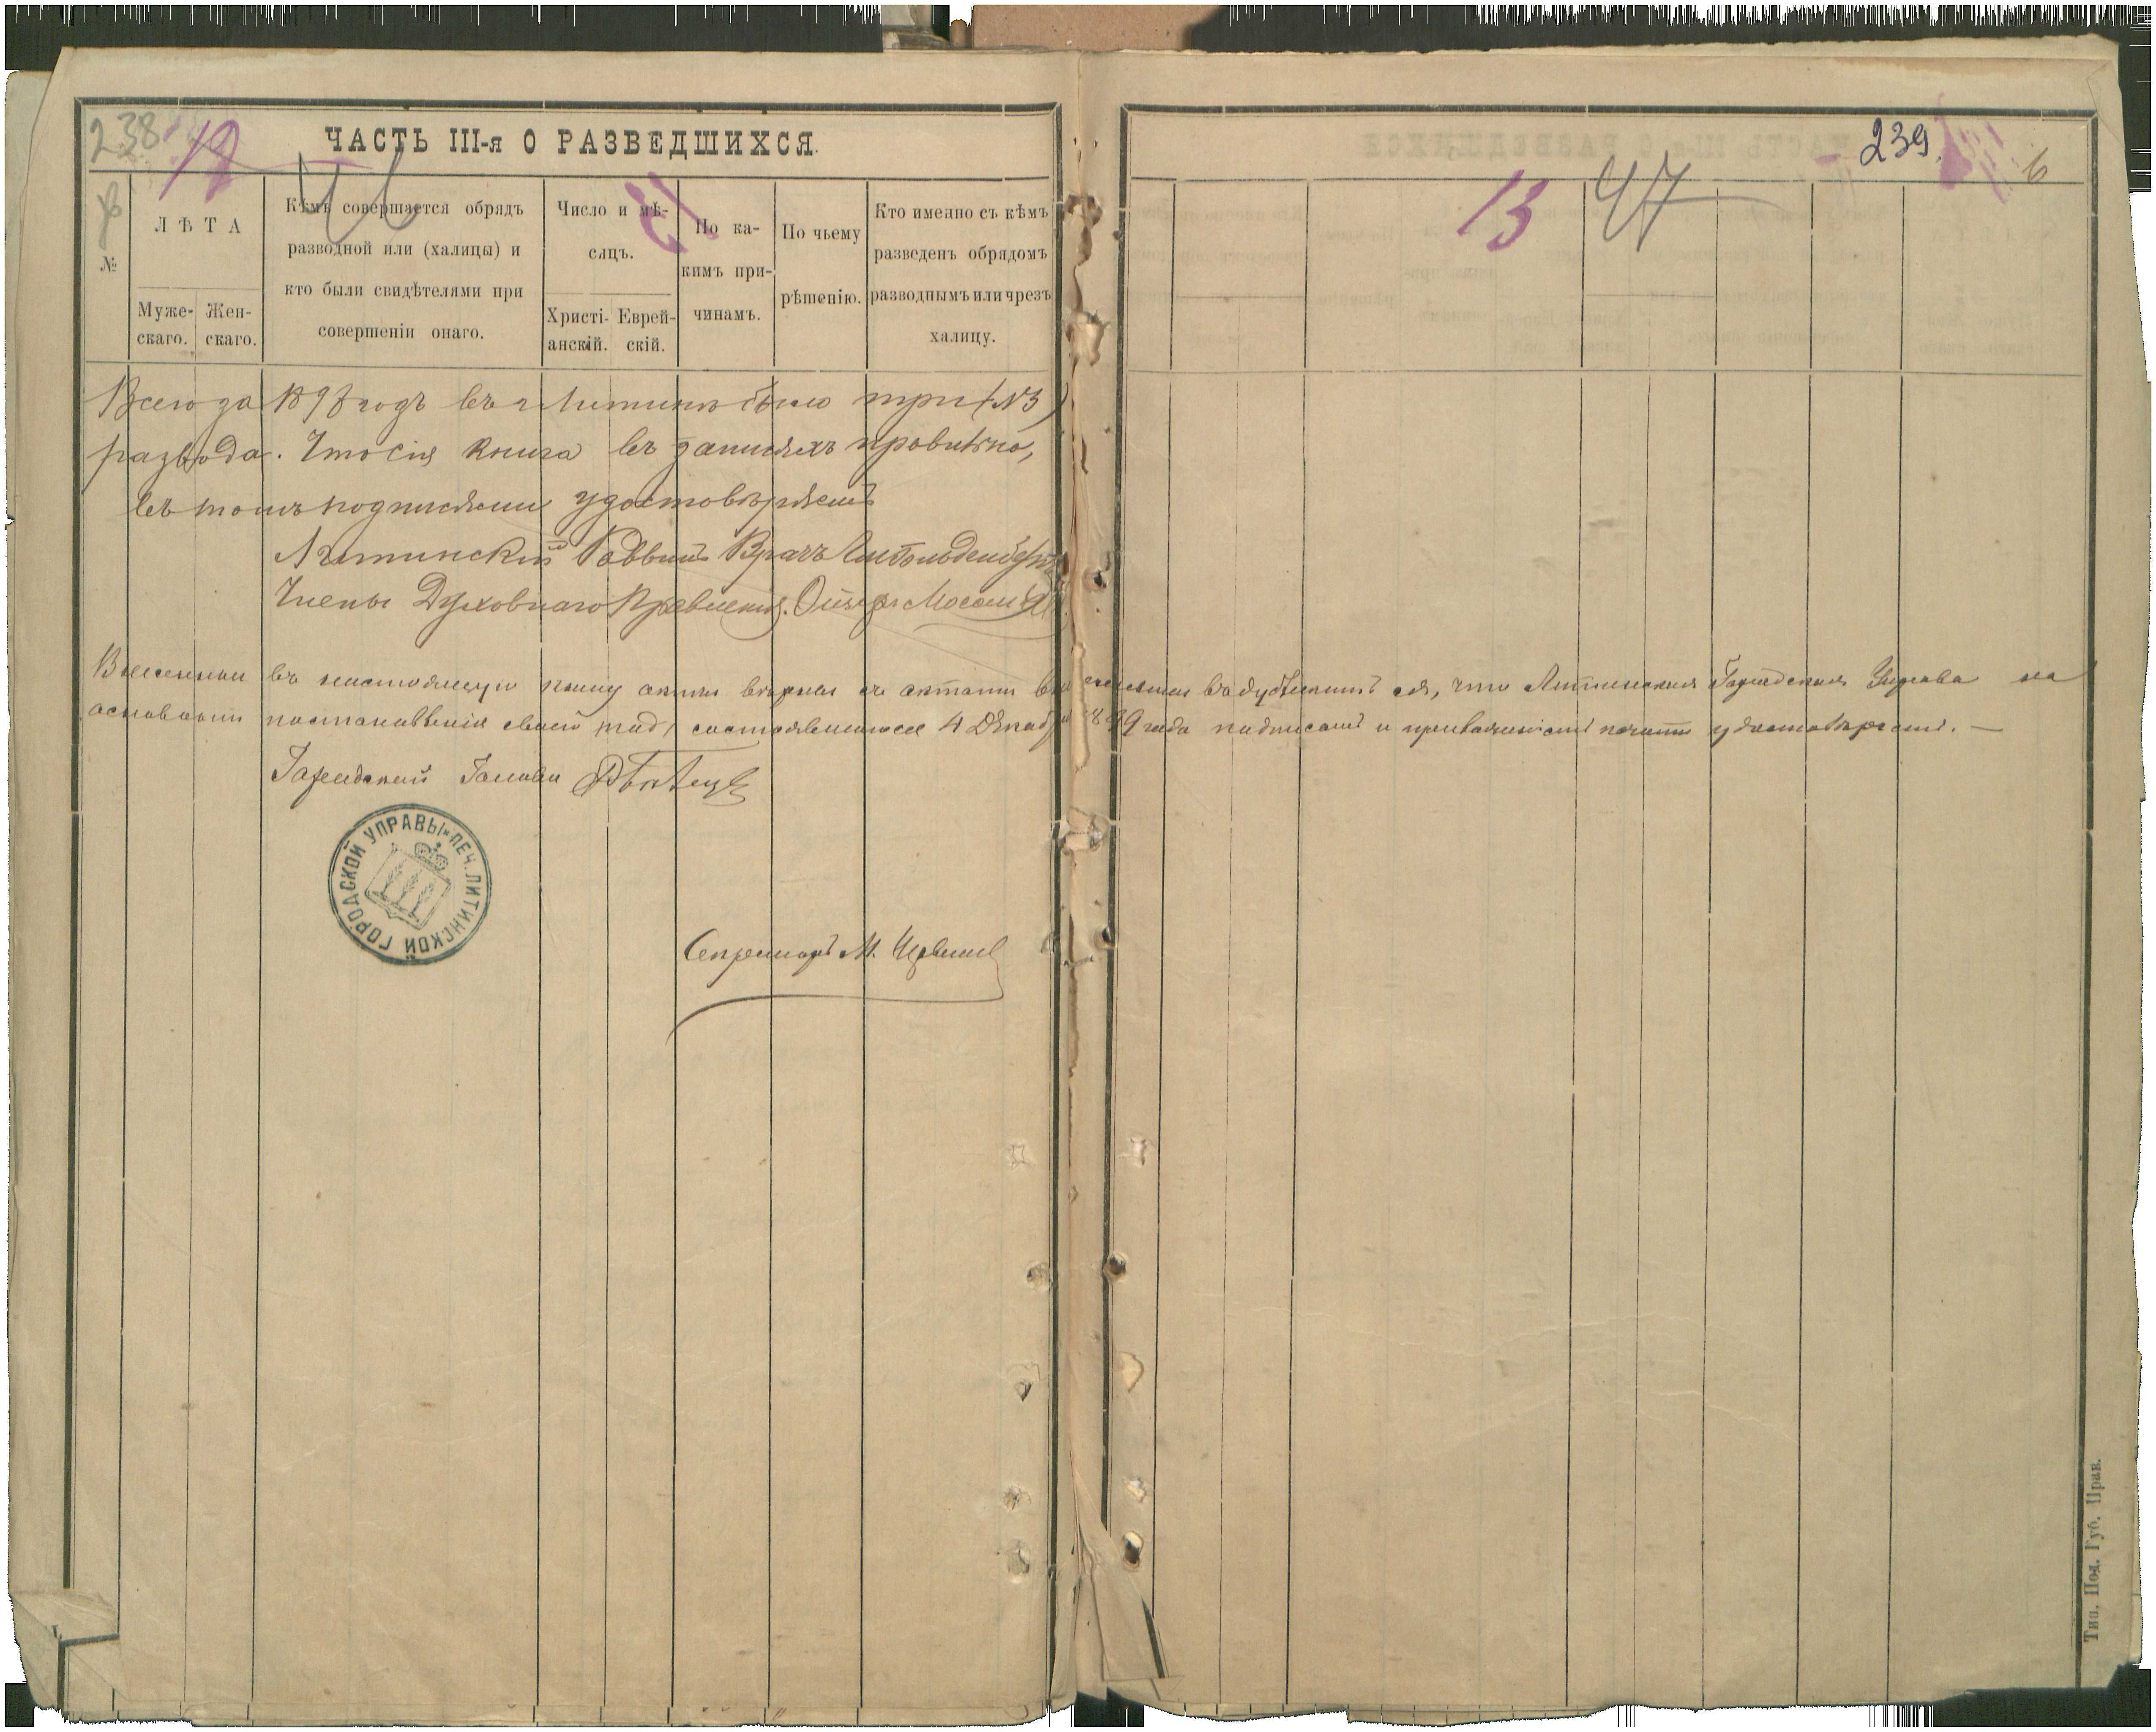 238
12
ЧАСТЬ III-я О РАЗВЕДШИХСЯ.
№
ЛѢТА
Муже-
скаго.
Жен-
скаго.
Кѣмъ совершается обрядъ
разводной или (халицы) и
кто были свидѣтелями при
совершеніи онаго.
Число и мѣ-
сяцъ.
Христі-
анскій.
Еврей-
скій.
По ка-
кимъ при-
чинамъ.
По чьему
рѣшенію.
Кто именно съ кѣмъ
разведенъ обрядомъ
разводнымъ или чрезъ
халицу.
Всего за 1898 годъ въ г Литинѣ было три (№3)
развода. Что сія книга въ записяхъ
въ томъ подписями удостовѣряемъ
Литинскій Раввинъ Врачъ
Члены Духовнаго Правленія.
Внесенные въ настоящую книгу акты вѣрны съ актами что Литинская Городская Управа на
основаніи постановленія своего состоявшагося 4 Декабря 1899 года подписомъ и приложеніемъ печати удостовѣряетъ. —
Городской Голова
ПЕЧ. ЛИТИНСКОЙ ГОРОДСКОЙ УПРАВЫ
Секретарь М.
239
13
47
6
Тип. Под. Губ. Прав.